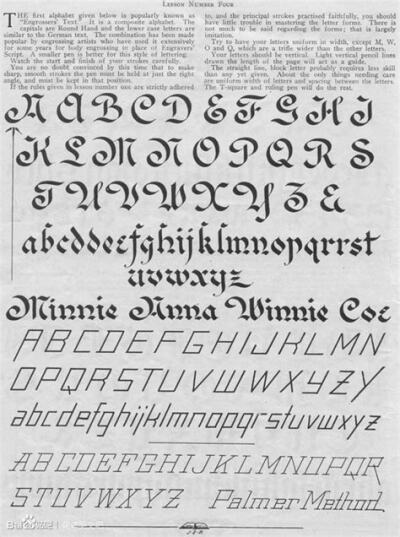 LESSON NUMBER FOUR
THE first alphabet given below is popularly known as
"Engrossers' Text". It is a composite alphabet. The
capitals are Round Hand and the lower case letters are
similar to the German text. The combination has been made
popular by engrossing artists who have used it extensively
for some years for body engrossing in place of Engrossers'
Script. A smaller pen is better for this style of lettering.
Watch the start and finish of your strokes carefully.
You are no doubt convinced by this time that to make
sharp, smooth strokes the pen must be held at just the right
angle, and must be kept in that position.
If the rules given in lesson number one are strictly adhered
to, and the principal strokes practised faithfully, you should
have little trouble in mastering the letter forms. There is
not much to be said regarding the forms; that is largely
imitation.
Try to have your letters uniform in width, except M, W,
O and Q, which are a trifle wider than the other letters.
Your letters should be vertical. Light vertical pencil lines
drawn the length of the page will act as a guide.
The straight line, block letter probably requires less skill
than any yet given. About the only things needing care
are uniform width of letters and spacing between the letters.
The T-square and ruling pen will do the rest.
A B C D E F G H I
K L M N O P Q R S
T U V W X Y Z &
abcddeefghijklmnopqrrst
uvwxyz
Minnie Anna Winnie Coe
ABCDEFGHIJKLMN
OPQRSTUVWWXYZY
abcdefghijklmnopqrstuvwxyz
ABCDEFGHIJKLMNOPQR
STUVWXYZ Palmer Method
Bai百科